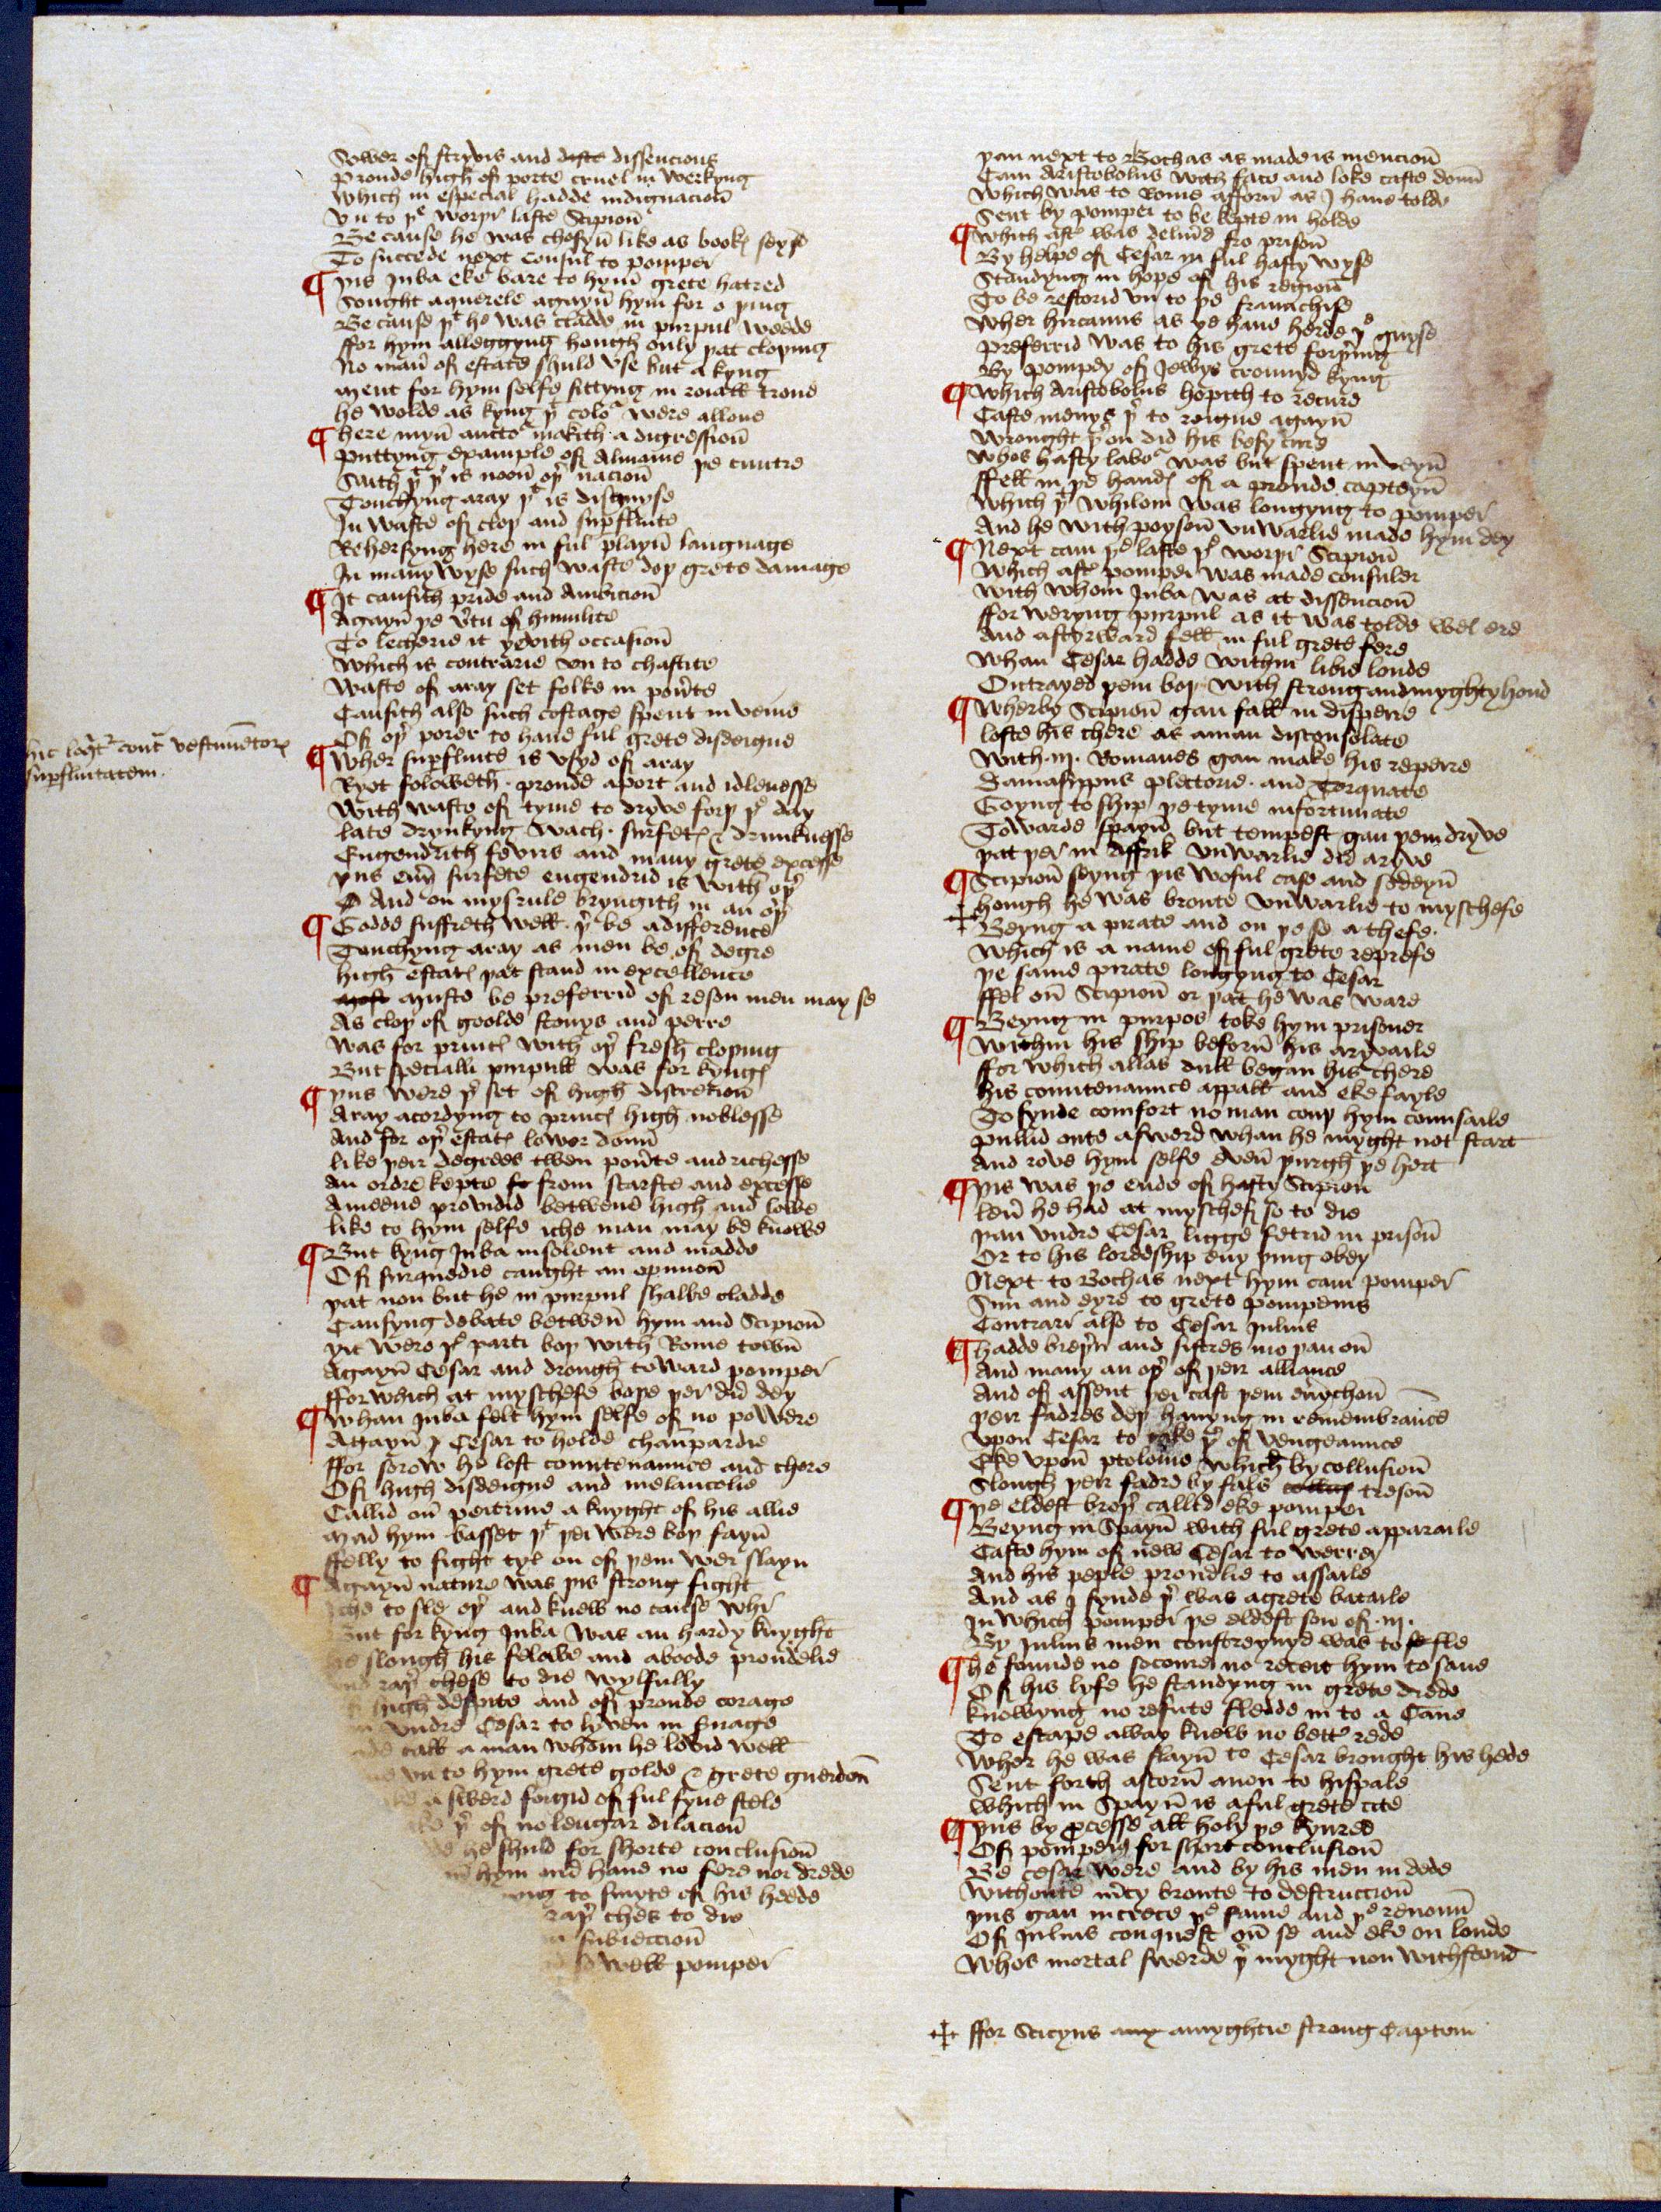 Sower of stryvis and dissencions
Proude high of porte cruel in werkyng
Which in especial hadde indignacioun
Vn to þe worþi laste Scipioun
Be cause he was chosyn like as bookes seyþ
To succede next Consul to Pompei
¶ Þis Juba eke bare to hym grete hatred
Sought a querele agayn hym for o þing
Be cause þt he was cladde in purpul weede
ffor hym alleggyng hough only þat cloþing
No man of estate shuld vse but a kyng
Ment for hym selfe sittyng in roiall trone
He wolde as kyng þt colour were allone
¶ Here myn auctour makith a digressioun
Puttyng example of Almaine þe cuntre
Saith þt þer is noon oþer nacioun
Touchyng aray þt is disguyse
In waste of cloþ and superfluite
Rehersyng here in ful playn language
In many wyse such waste doþ grete damage
¶ It causith pride and Ambicioun
Agayn þe vertu of humilite
To lecherie it yevith occasioun
Which is contrarie vn to chastite
Waste of aray set folke in pouerte
Causith also such costage spent in veine
Of oþer porer to haue ful grete disdeigne
hic loqitur contra vestimentorum
superfluitatem.
¶ Wher superfluite is vsyd of aray
Ryot foloweth . proude aport and idlenesse
With waste of tyme to dryve forþ þe day
Late drynkyng wach . surfetes & drunknesse
Engendrith fevris and many grete excesse
Þus euery surfete engendrid is with oþer
And on mysrule bryngith in an oþer
¶ Godde suffreth well . þer be a difference
Touchyng aray as men be of degre
High estates þat stand in excellence
Muste be preferrid of reson men may se
As cloþ of goolde stonys and perre
Was for princes with oþer fresh cloþing
But specialli purpull was for kynges
¶ Þus were þer set of high discrecioun
Aray acordyng to princes high noblesse
And for oþer estates lower doun
Like þeir degrees twen pouerte and richesse
An ordre kepte from scarste and excesse
A meene providid betwene high and lowe
Like to hym selfe iche man may be knowe
¶ But kyng Juba insolent and madde
Of surquedie caught an opinioun
Þat non but he in purpul shalbe cladde
Causyng debate betwen hym and Scipioun
Yit were þe parti boþ with Rome town
Agayn Cesar and drough toward Pompei
ffor which at myschefe boþe þei did dey
¶ Whan Juba felt hym selfe of no powere
Agayn Cesar to holde champardie
ffor sorow he lost countenaunce and chere
Of high disdeigne and melancolie
Callid on peitrine a knyght of his allie
Mad hym basset þt þei were boþ fayn
ffelly to fight tyl on of þem wer slayn
¶ Agayn nature was þis strong fight
Iche to sle oþer and knew no cause whi
But for kyng Juba was an hardy knyght
He slough his felawe and aboode proudelie
And raþer chese to die wylfully
high despite and of proude corage
vndre Cesar to lyven in seruage
call a man whom he lovid well
vn to hym grete golde & grete guerdoun
a swerd forgid of ful fyne stele
þer of no lengar dilacioun
he shuld for shorte conclusioun
hym and haue no fere nor drede
to smyte of his heede
raþer ches to die
subieccioun
well Pompei
Þan next to Bochas as made is mencioun
Cam Aristobolus with face and loke caste doun
Which was to Rome afforn as I haue tolde
Sent by Pompei to be kepte in holde
¶ Which after was delivered fro prisoun
By helpe of Cesar in ful hasty wyse
Standyng in hope of his regioun
To be restorid vn to þe fraunchise
Wher hircanus as ye haue herde þe guyse
Preferrid was to his grete forþering
By Pompey of Jewys crounyd kyng
¶ Which Aristobolus hopith to recure
Caste menys þer to reigne agayn
Wrought þer on did his besy cure
Whos hasty labour was but spent in veyn
ffell in þe handes of a proude capteyn
Which þt whilom was longyng to Pompei
And he with poysoun vnwarlie made hym dey
¶ Next cam þe laste þe worþi Scipioun
Which after Pompei was made consuler
With whom Juba was at dissencioun
ffor weryng purpul as it was tolde wel ere
And afterward fell in ful grete fere
Whan Cesar hadde within libie londe
Outrayed þem boþ with strong and myghty hond
¶ Wherby Scipioun gan fall in dispeire
Loste his chere as a man disconsolate
With .iij. Romanes gan make his repeire
Damasippus plectorie . and Torquate
Goyng to ship þe tyme infortunate
Towarde spayn but tempest gan þem dryve
Þat þei in Affrik vnwarlie did aryve
¶ Scipioun seyng þis woful case and sodeyn
Hough he was broute vnwarlie to myschefe
✢ Beyng a pirate and on þe se a thefe .
Which is a name of ful grete reprefe
Þe same pirate longyng to Cesar
ffel on Scipioun or þat he was ware
¶ Beyng in purpos toke hym prisoner
Within his ship beforn his aryvaile
ffor which allas dull began his chere
His countenaunce appall and eke fayle
To fynde comfort no man couþ hym counsaile
Pullid oute a swerd whan he myght not start
And rove hym selfe even þurgh þe hert
¶ Þis was þe ende of hasty Scipioun
Lever he had at myschef so to die
Þan vndre Cesar ligge fetrid in prisoun
Or to his lordeship eny þing obey
Next to Bochas next hym cam Pompei
Sun and eyre to grete Pompeius
Contrari also to Cesar Julius
¶ Hadde breþern and sistres mo þan on
And many an oþer of þeir alliance
And of assent þei cast þem everychon
Þeir fadres deþ hauyng in remembraunce
Vpon Cesar to take þer of vengeaunce
Eke vpon ptolome which by collusioun
Slough þeir fadre by fals tresoun
¶ Þe eldest broþer callid eke Pompei
Beyng in Spayn with ful grete apparaile
Caste hym of new Cesar to werrey
And his peple proudlie to assaile
And as I fynde þer was a grete bataile
In which Pompei þe eldest son of .iij.
By Julius men constreynyd was to fle
¶ He founde no socoure no receit hym to saue
Of his lyfe he standyng in grete drede
Knowyng no refute fledde in to a Caue
To escape away knew no better rede
Wher he was slayn to Cesar brought his hede
Sent forth aforn anon to hispale
Which in Spayn is a ful grete cite
¶ Þus by processe all holy þe kynred
Of Pompeis for short conclusioun
Be cesar were and by his men in dede
Withoute mercy broute to destruccioun
Þus gan increce þe fame and þe renoun
Of Julius conquest on se and eke on londe
Whos mortal swerde þer myght non withstond
✢ ffor Sticyus a myghtie strong Captein